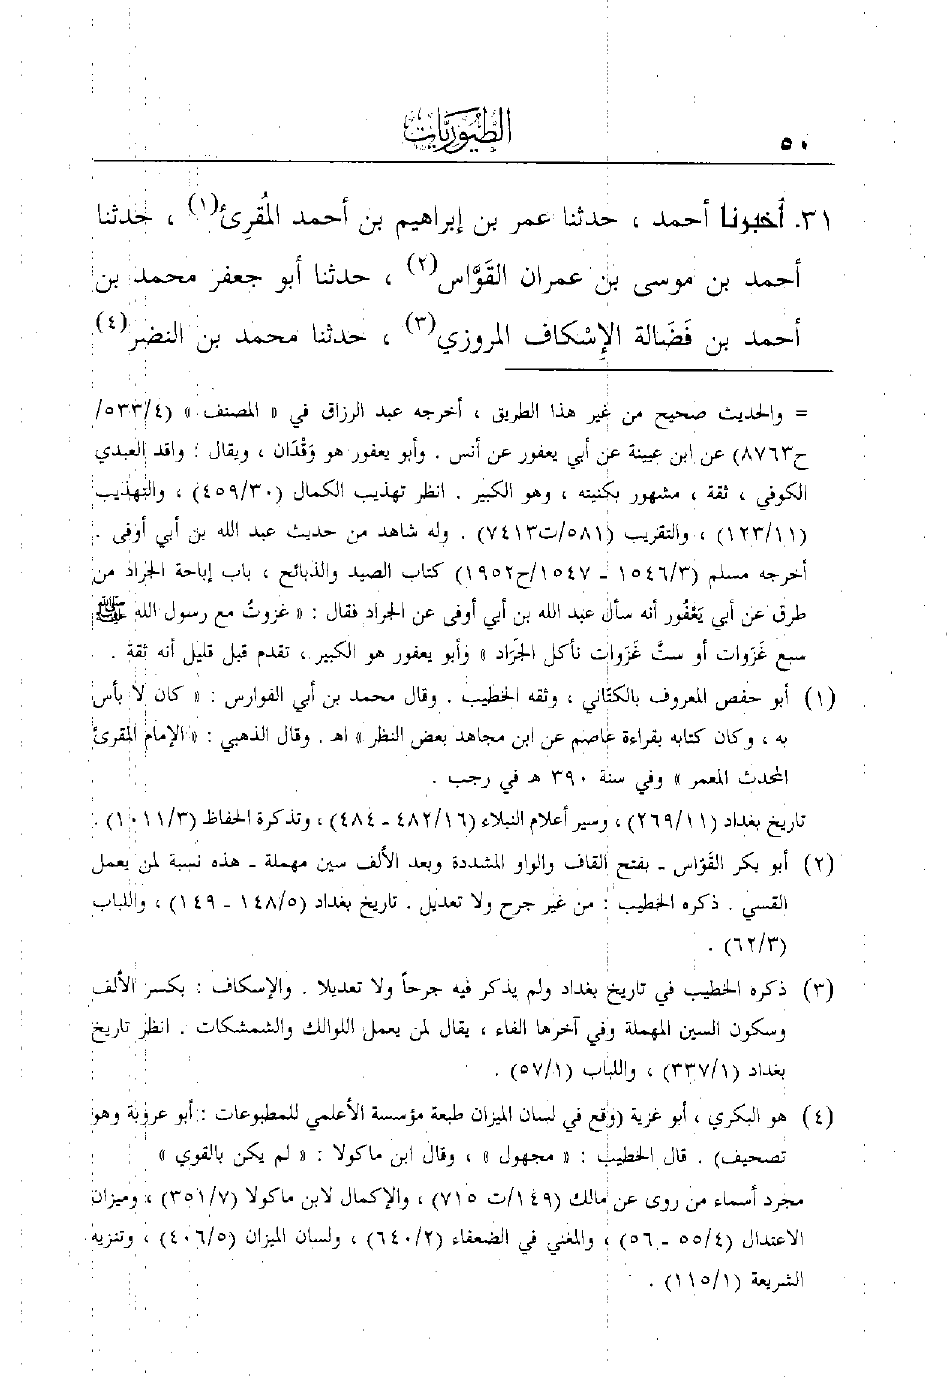 ٥٠
الطيوريات
٣١. أخبرنا أحمد ، حدثنا عمر بن إبراهيم بن أحمد المُقرِئ(١) ، حدثنا
أحمد بن موسى بن عمران القَوَّاس(٢) ، حدثنا أبو جعفر محمد بن
أحمد بن فَضَالة الإِسْكاف المروزي(٣) ، حدثنا محمد بن النضر(٤)
= والحديث صحيح من غير هذا الطريق ، أخرجه عبد الرزاق في « المصنف » (٥٣٣/٤/
ح٨٧٦٣) عن ابن عيينة عن أبي يعفور عن أنس . وأبو يعفور هو وَقْدَان ، ويقال : واقد العبدي
الكوفي ، ثقة ، مشهور بكنيته ، وهو الكبير . انظر تهذيب الكمال (٤٥٩/٣٠) ، والتهذيب
(١٢٣/١١) ، والتقريب (٥٨١/ت٧٤١٣) . وله شاهد من حديث عبد الله بن أبي أوفى .
أخرجه مسلم (١٥٤٦/٣ ـ ١٥٤٧/ح١٩٥٢) كتاب الصيد والذبائح ، باب إباحة الجراد من
طرق عن أبي يَعْفُور أنه سأل عبد الله بن أبي أوفى عن الجراد فقال : « غزوتُ مع رسول الله ﷺ
سبع غَزَوات أو ستَّ غَزَوات نأكل الجَرَاد » وأبو يعفور هو الكبير ، تقدم قبل قليل أنه ثقة .
(١) أبو حفص المعروف بالكتّاني ، وثقه الخطيب . وقال محمد بن أبي الفوارس : « كان لا بأس
به ، وكان كتابه بقراءة عاصم عن ابن مجاهد بعض النظر » اهـ . وقال الذهبي : « الإمام المقرئ
المحدث المعمر » وفي سنة ٣٩٠ هـ في رجب .
تاريخ بغداد (٢٦٩/١١) ، وسير أعلام النبلاء (٤٨٢/١٦ ـ ٤٨٤) ، وتذكرة الحفاظ (١٠١١/٣) .
(٢) أبو بكر القَوَّاس ـ بفتح القاف والواو المشددة وبعد الألف سين مهملة ـ هذه نسبة لمن يعمل
القسي . ذكره الخطيب : من غير جرح ولا تعديل . تاريخ بغداد (١٤٨/٥ ـ ١٤٩) ، واللباب
(٦٢/٣) .
(٣) ذكره الخطيب في تاريخ بغداد ولم يذكر فيه جرحاً ولا تعديلا . والإسكاف : بكسر الألف
وسكون السين المهملة وفي آخرها الفاء ، يقال لمن يعمل اللوالك والشمشكات . انظر تاريخ
بغداد (٣٣٧/١) ، واللباب (٥٧/١) .
(٤) هو البكري ، أبو غزية (وقع في لسان الميزان طبعة مؤسسة الأعلمي للمطبوعات : أبو عروبة وهو
تصحيف) . قال الخطيب : « مجهول » ، وقال ابن ماكولا : « لم يكن بالقوي »
مجرد أسماء من روى عن مالك (١٤٩/ت ٧١٥) ، والإكمال لابن ماكولا (٣٥١/٧) ، وميزان
الاعتدال (٥٥/٤ ـ ٥٦) ، والمغني في الضعفاء (٦٤٠/٢) ، ولسان الميزان (٤٠٦/٥) ، وتنزيه
الشريعة (١١٥/١) .